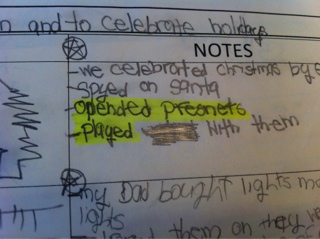 n and to celebrate holidays
NOTES
- we celebrated christmas by
- spyed on santa
- opended presnets
- Played with them
my Dad bought lights
lights
them on they